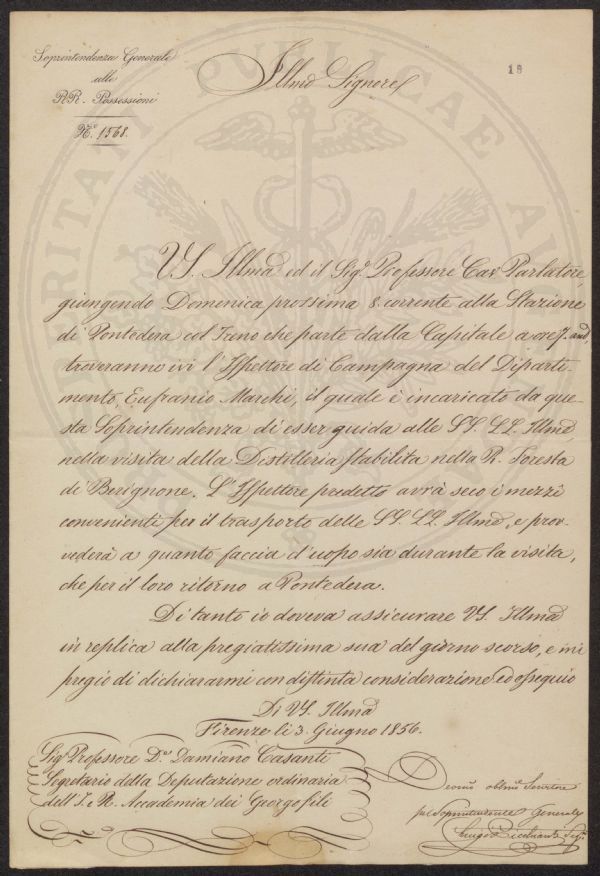 Soprintendenza Generale
alle
RR. Possessioni
N.º 1568.
18
Illmo Signore
PUBLICAE
V.S. Illma ed il Sig.r Professore Cav Parlatore,
giungendo Domenica prossima 8. corrente alla Stazione
di Pontedera col Treno che parte dalla Capitale a ore 7. and.
troveranno ivi l'Ispettore di Campagna del Diparti-
mento, Eufranio Marchi, il quale è incaricato da que-
sta Soprintendenza di esser guida alle SS. LL. Illme
nella visita della Distilleria stabilita nella R. Foresta
di Berignone. L'Ispettore predetto avrà seco i mezzi
convenienti per il trasporto delle SS. LL. Illme, e prov-
vederà a quanto faccia d'uopo sia durante la visita,
che per il loro ritorno a Pontedera.
Di tanto io doveva assicurare VS. Illma
in replica alla pregiatissima sua del giorno scorso, e mi
pregio di dichiararmi con distinta considerazione ed ossequio
Di VS. Illma
Firenze li 3. Giugno 1856.
Sig.r Professore D.r Damiano Casanti
Segretario della Deputazione ordinaria
dell'I. e R. Accademia dei Georgofili
Devmo obbmo Servitore
pel Soprintendente Generale